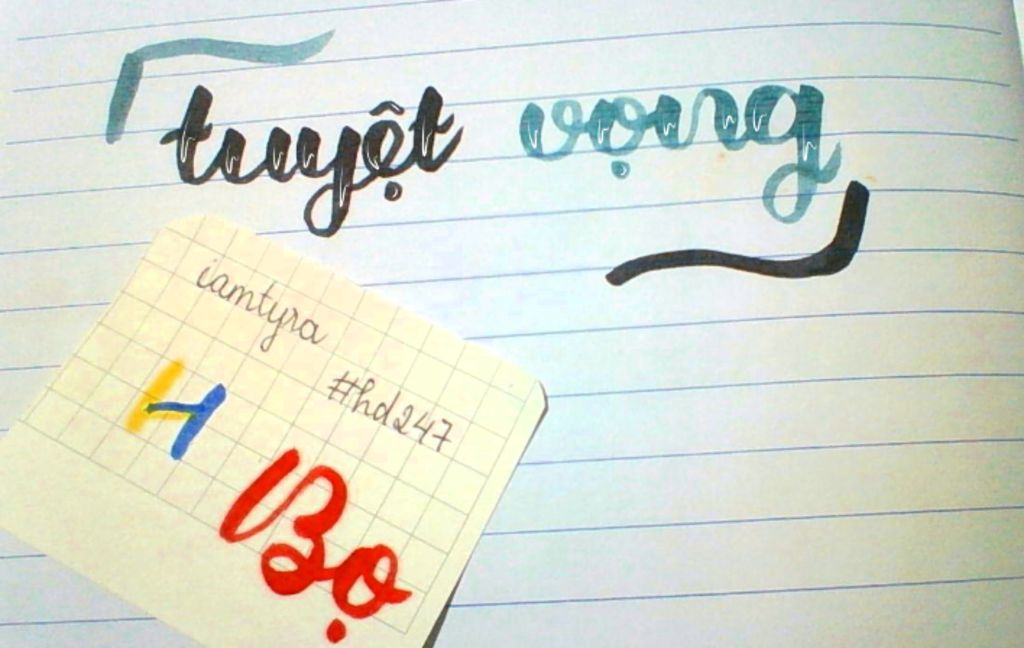 tuyệt vọng
iamtyra
#hd247
H
Bọ